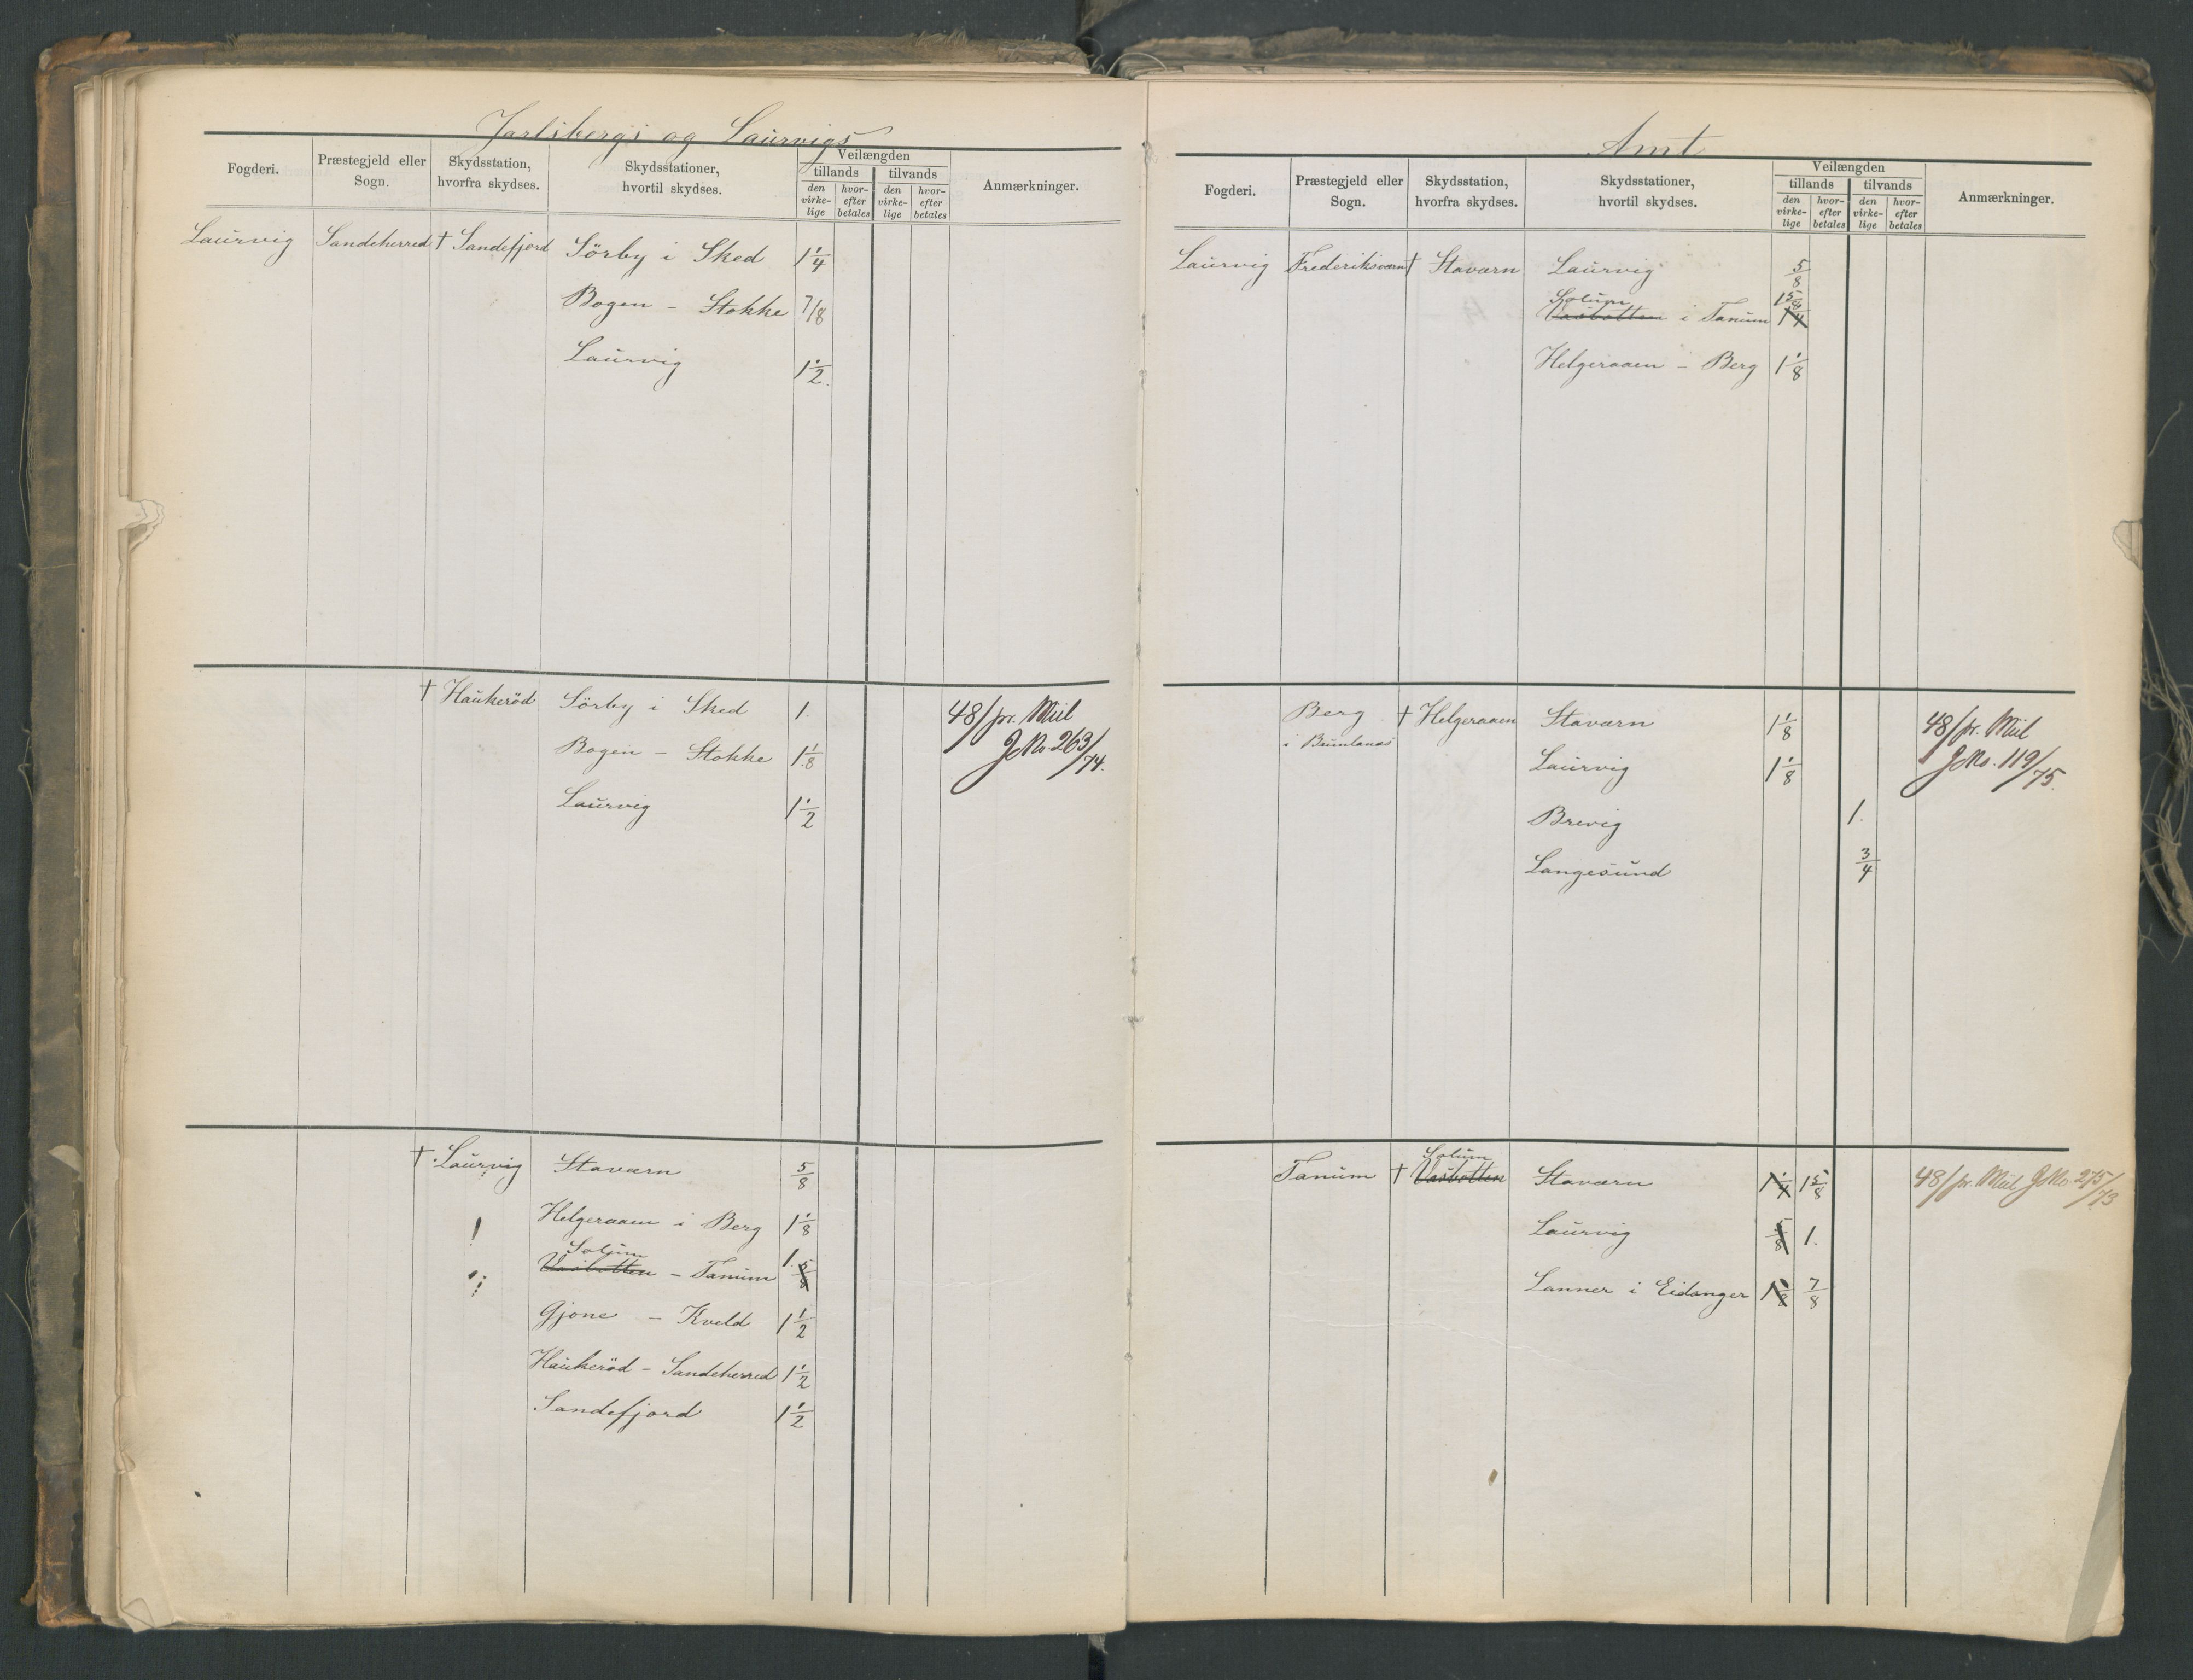 Jarlsbergs og Laurvigs
Fogderi. Præstegjeld eller Sogn. Skydsstation, hvorfra skydses. Skydsstationer, hvortil skydses. Veilængden tillands tilvands den virke-lige hvor-efter betales den virke-lige hvor-efter betales Anmærkninger.
Laurvig Sandeherred † Sandefjord Sörby i Sked 1 1/4
Bogen - Stokke 7/8
Laurvig 1 1/2.
† Haukeröd Sörby i Sked 1. 48/ pr. Miil
Bogen - Stokke 1 1/8 J.No. 263/74.
Laurvig 1 1/2
† Laurvig Staværn 5/8
! Helgeraaen i Berg 1 1/8
Solum
Vasbotten - Tanum 1. 5/8
Gjone - Kveld 1 1/2
Haukeröd - Sandeherred 1 1/2
Sandefjord 1 1/2
Amt
Fogderi. Præstegjeld eller Sogn. Skydsstation, hvorfra skydses. Skydsstationer, hvortil skydses. Veilængden tillands tilvands den virke-lige hvor-efter betales den virke-lige hvor-efter betales Anmærkninger.
Laurvig Frederiksværn † Staværn Laurvig 5/8
Solum 1 5/8
Vasbotten i Tanum 1 1/4
Helgeraaen - Berg 1 1/8
Berg † Helgeraaen Staværn 1 1/8 48/ pr. Miil
i Brunlanæs
Laurvig 1 1/8 J.No. 119/75.
Brevig 1.
Langesund 3/4
Solum
Tanum † Vasbotten Staværn 1 1/4 1 5/8 48/ pr. Miil J.No. 275/73
Laurvig 5/8 1.
Lanner i Eidanger 1 1/8 7/8